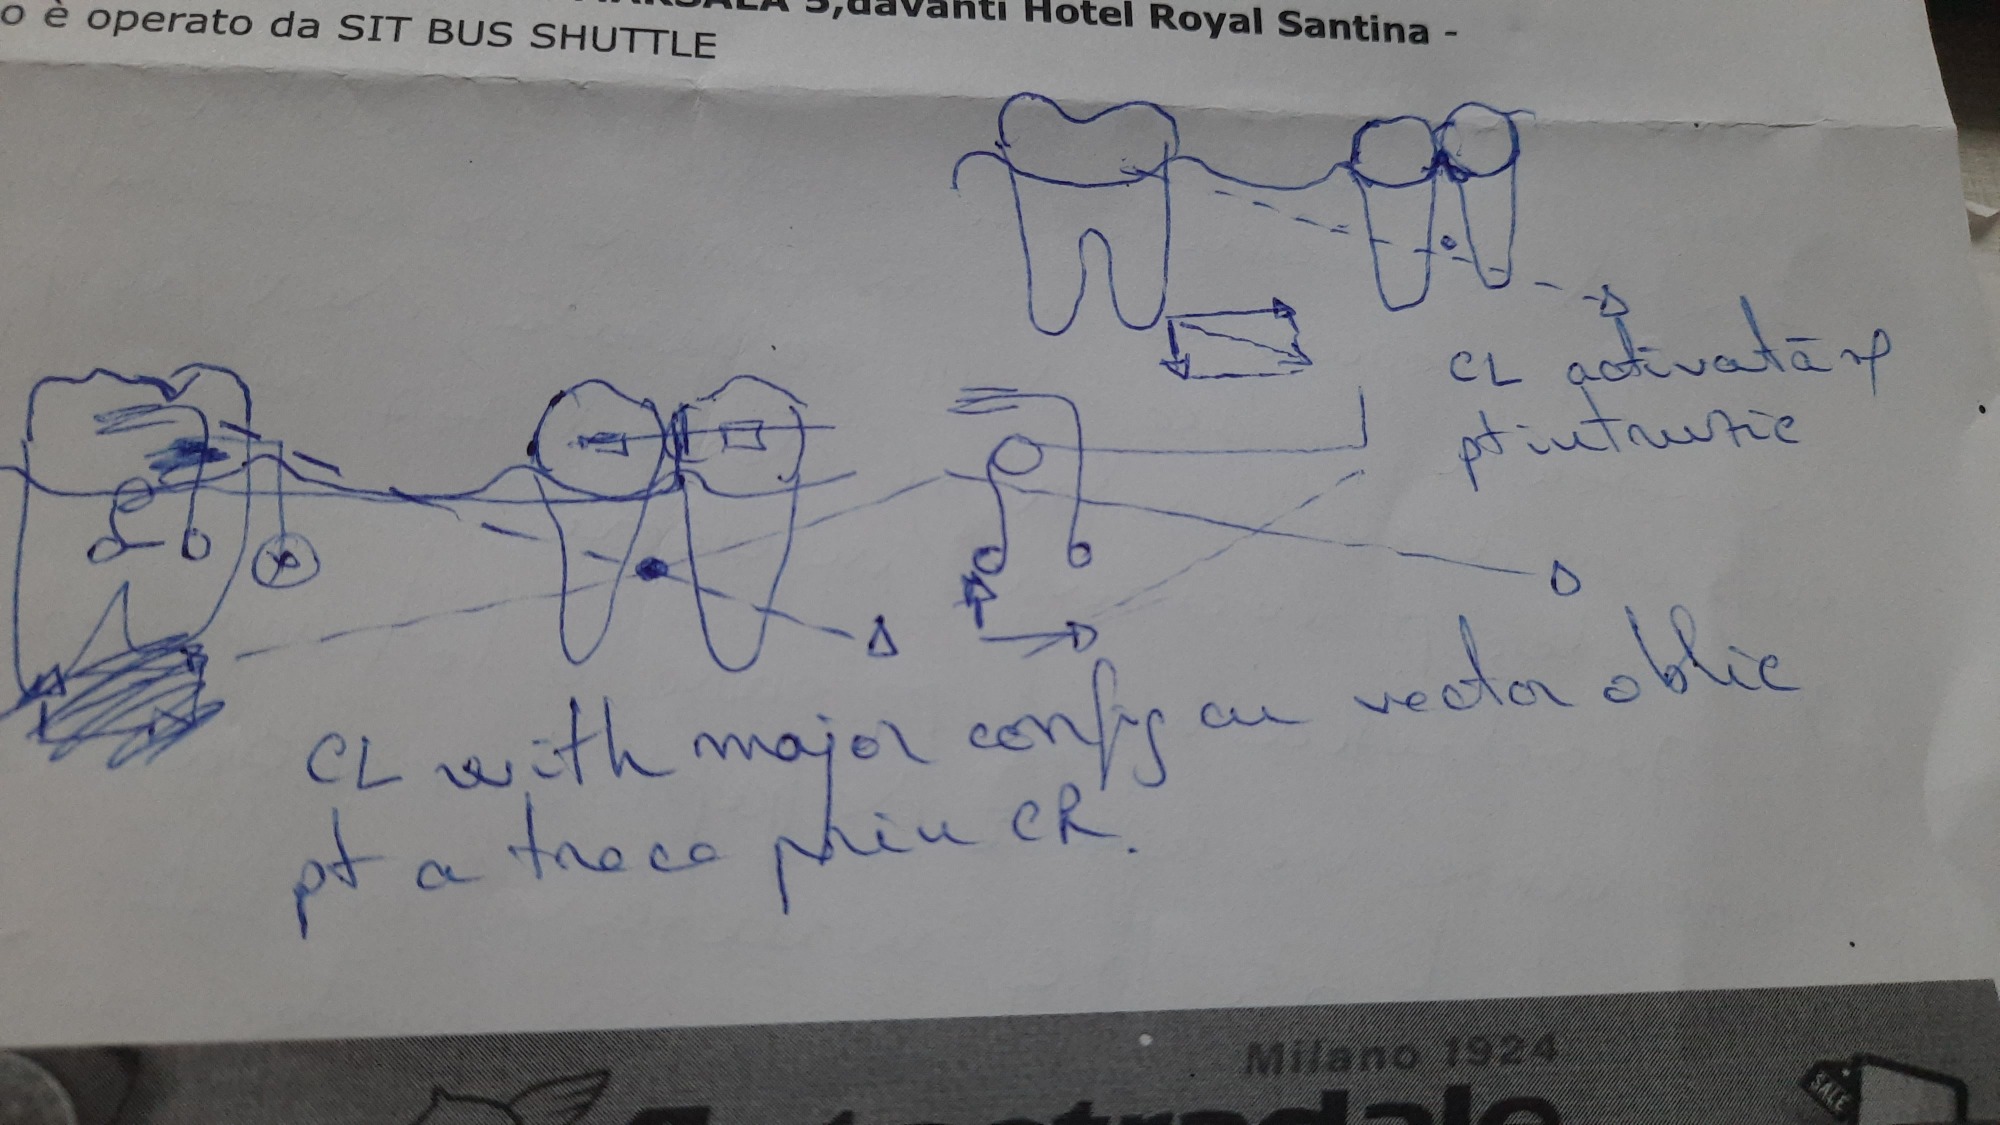 5,davanti Hotel Royal Santina -
o è operato da SIT BUS SHUTTLE
CL activată
pt intruzie
CL with major config cu vector oblic
pt a trece prin CR.
Milano 1924
Autostradale
SALE